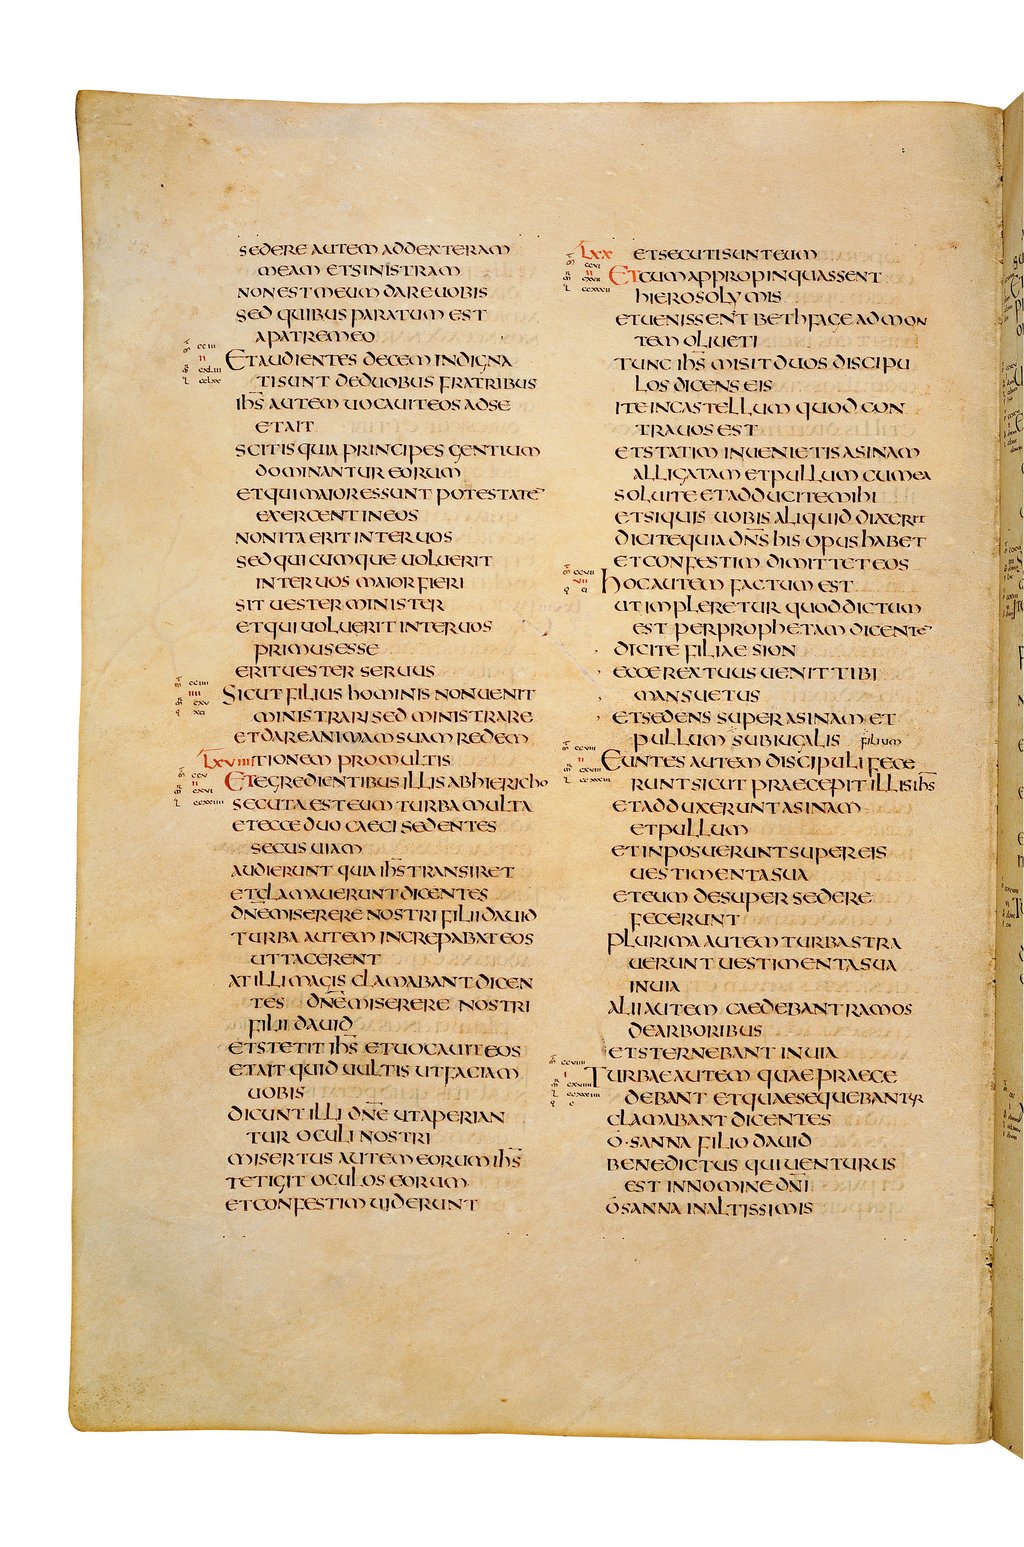 SEDERE AUTEM AD DEXTERAM
MEAM ET SINISTRAM
NON EST MEUM DARE UOBIS
SED QUIBUS PARATUM EST
A PATRE MEO
ET AUDIENTES DECEM INDIGNA
TI SUNT DE DUOBUS FRATRIBUS
IHS̄ AUTEM UOCAUIT EOS AD SE
ET AIT
SCITIS QUIA PRINCIPES GENTIUM
DOMINANTUR EORUM
ET QUI MAIORES SUNT POTESTATE
EXERCENT IN EOS
NON ITA ERIT INTER UOS
SED QUICUMQUE UOLUERIT
INTER UOS MAIOR FIERI
SIT UESTER MINISTER
ET QUI UOLUERIT INTER UOS
PRIMUS ESSE
ERIT UESTER SERUUS
SICUT FILIUS HOMINIS NON UENIT
MINISTRARI SED MINISTRARE
ET DARE ANIMAM SUAM REDEM
LXVIIII TIONEM PRO MULTIS
ET EGREDIENTIBUS ILLIS AB HIERICHO
SECUTA EST EUM TURBA MULTA
ET ECCE DUO CAECI SEDENTES
SECUS UIAM
AUDIERUNT QUIA IHS̄ TRANSIRET
ET CLAMAUERUNT DICENTES
DN̄E MISERERE NOSTRI FILII DAUID
TURBA AUTEM INCREPABAT EOS
UT TACERENT
AT ILLI MAGIS CLAMABANT DICEN
TES DN̄E MISERERE NOSTRI
FILII DAUID
ET STETIT IHS̄ ET UOCAUIT EOS
ET AIT QUID UULTIS UT FACIAM
UOBIS
DICUNT ILLI DN̄E UT APERIAN
TUR OCULI NOSTRI
MISERTUS AUTEM EORUM IHS̄
TETIGIT OCULOS EORUM
ET CONFESTIM UIDERUNT
LXX ET SECUTI SUNT EUM
ET CUM APPROPINQUASSENT
HIEROSOLYMIS
ET UENISSENT BETHFAGE AD MON
TEM OLIUETI
TUNC IHS̄ MISIT DUOS DISCIPU
LOS DICENS EIS
ITE IN CASTELLUM QUOD CON
TRA UOS EST
ET STATIM INUENIETIS ASINAM
ALLIGATAM ET PULLUM CUM EA
SOLUITE ET ADDUCITE MIHI
ET SI QUIS UOBIS ALIQUID DIXERIT
DICITE QUIA DN̄S HIS OPUS HABET
ET CONFESTIM DIMITTET EOS
HOC AUTEM FACTUM EST
UT IMPLERETUR QUOD DICTUM
EST PER PROPHETAM DICENTE
DICITE FILIAE SION
ECCE REX TUUS UENIT TIBI
MANSUETUS
ET SEDENS SUPER ASINAM ET
PULLUM SUBIUGALIS filium
EUNTES AUTEM DISCIPULI FECE
RUNT SICUT PRAECEPIT ILLIS IHS̄
ET ADDUXERUNT ASINAM
ET PULLUM
ET INPOSUERUNT SUPER EIS
UESTIMENTA SUA
ET EUM DESUPER SEDERE
FECERUNT
PLURIMA AUTEM TURBA STRA
UERUNT UESTIMENTA SUA
IN UIA
ALII AUTEM CAEDEBANT RAMOS
DE ARBORIBUS
ET STERNEBANT IN UIA
TURBAE AUTEM QUAE PRAECE
DEBANT ET QUAE SEQUEBANTUR
CLAMABANT DICENTES
OSANNA FILIO DAUID
BENEDICTUS QUI UENTURUS
EST IN NOMINE DN̄I
OSANNA IN ALTISSIMIS